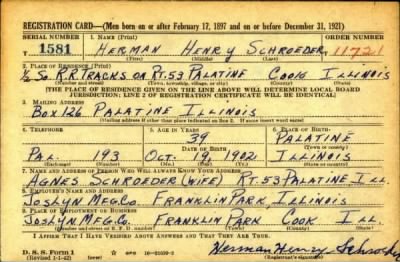 REGISTRATION CARD—(Men born on or after February 17, 1897 and on or before December 31, 1921)
SERIAL NUMBER 1. NAME (Print) ORDER NUMBER
T 1581 HERMAN HENRY SCHROEDER 11721
(First) (Middle) (Last)
2. PLACE OF RESIDENCE (Print)
½ So. R.R TRACKS ON RT. 53 PALATINE COOK ILLINOIS
(Number and street) (Town, township, village, or city) (County) (State)
[THE PLACE OF RESIDENCE GIVEN ON THE LINE ABOVE WILL DETERMINE LOCAL BOARD
JURISDICTION; LINE 2 OF REGISTRATION CERTIFICATE WILL BE IDENTICAL]
3. MAILING ADDRESS
BOX 126 PALATINE ILLINOIS
[Mailing address if other than place indicated on line 2. If same insert word same]
4. TELEPHONE 5. AGE IN YEARS 6. PLACE OF BIRTH
39 PALATINE
DATE OF BIRTH (Town or county)
PAL. 193 OCT. 19, 1902 ILLINOIS
(Exchange) (Number) (Mo.) (Day) (Yr.) (State or country)
7. NAME AND ADDRESS OF PERSON WHO WILL ALWAYS KNOW YOUR ADDRESS
AGNES SCHROEDER (WIFE) RT. 53 PALATINE ILL.
8. EMPLOYER'S NAME AND ADDRESS
JOSLYN MFG. CO. FRANKLIN PARK, ILL.
9. PLACE OF EMPLOYMENT OR BUSINESS
JOSLYN MFG. CO. FRANKLIN PARK COOK ILL.
(Number and street or R. F. D. number) (Town) (County) (State)
I AFFIRM THAT I HAVE VERIFIED ABOVE ANSWERS AND THAT THEY ARE TRUE.
D. S. S. Form 1
(Revised 1-1-42) (over) Herman Henry Schroeder